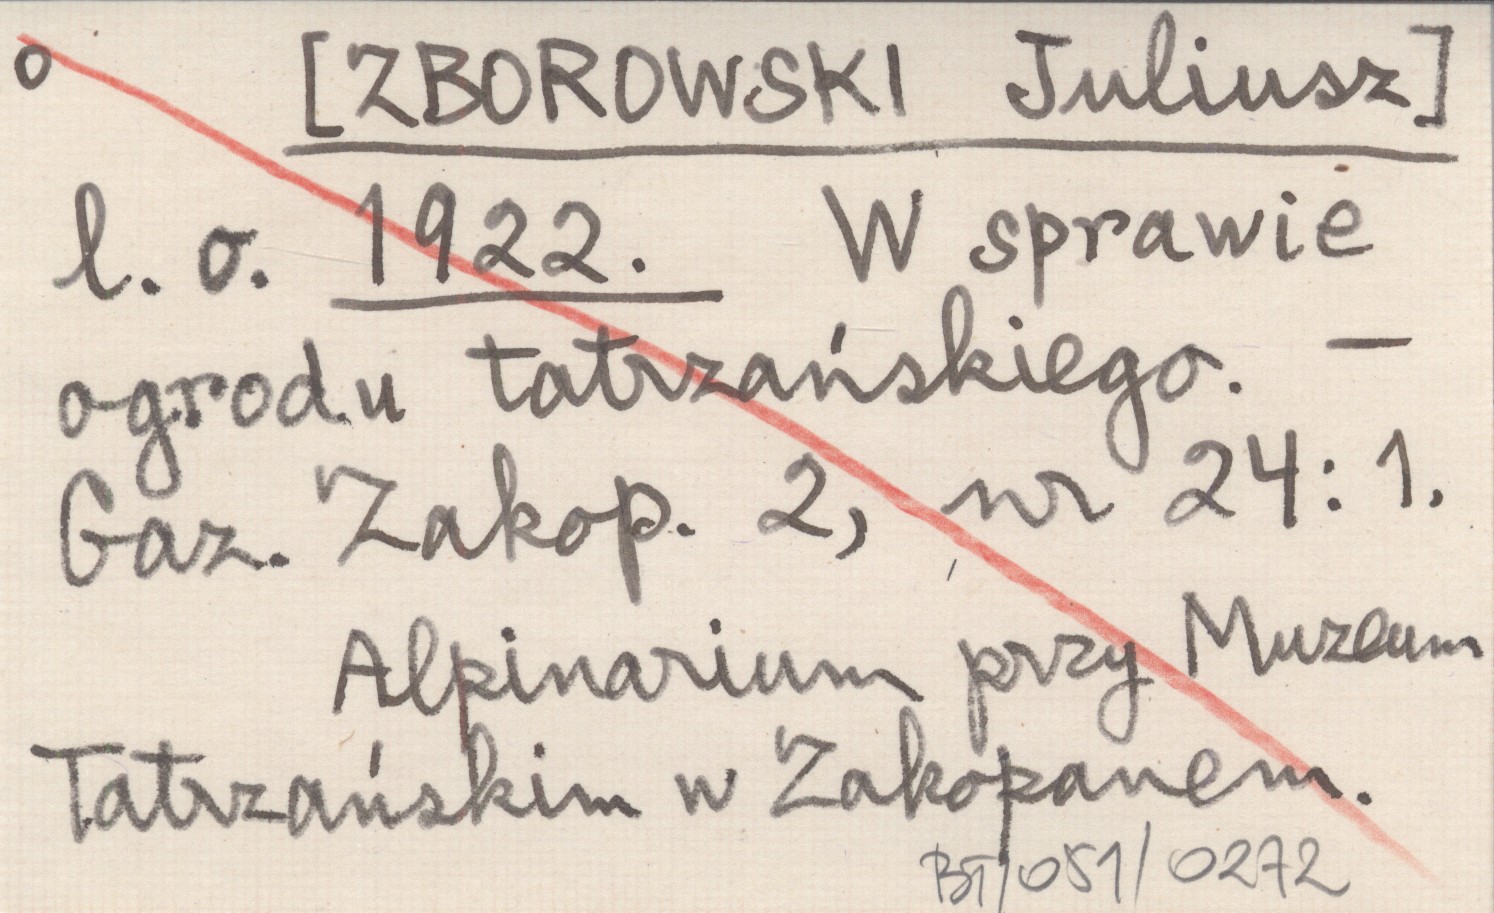 o [ZBOROWSKI Juliusz]
l. o. 1922. W sprawie
ogrodu tatrzańskiego. —
Gaz. Zakop. 2, nr 24: 1.
Alpinarium przy Muzeum
Tatrzańskim w Zakopanem.
BT/051/0272